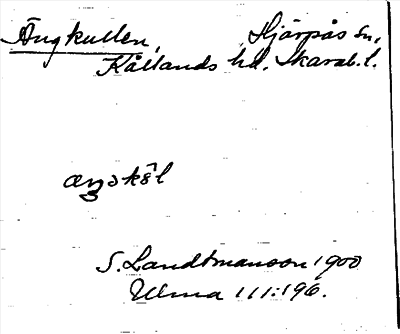 Ängkullen, Hjärpås sn,
Kållands hd. Skarab. l.
S. Landtmanson 1900
Ulma 111:196.